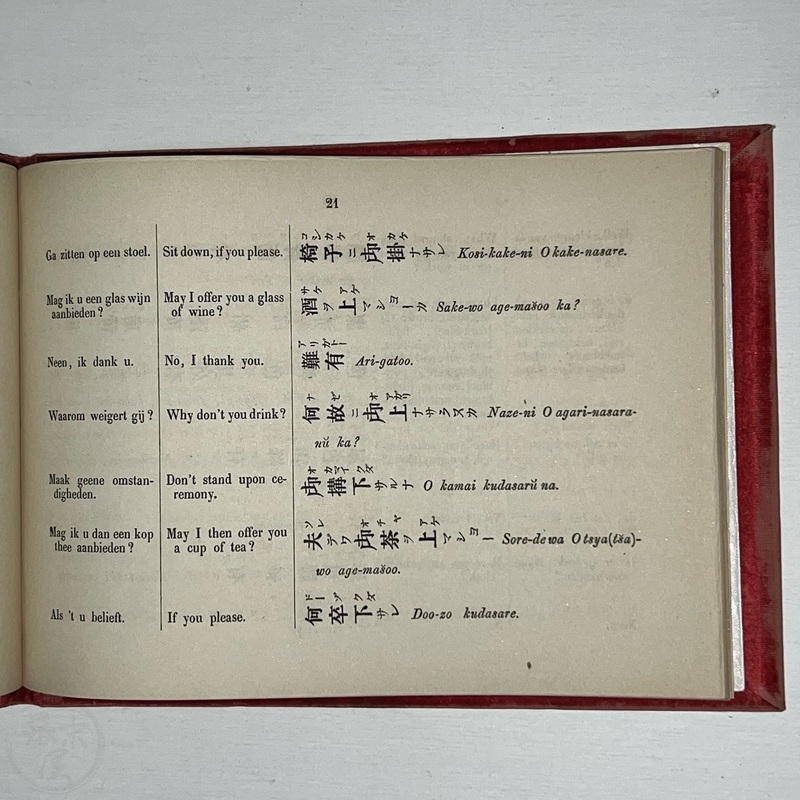 21
Ga zitten op een stoel. Sit down, if you please. 椅子ニ御掛ナサレ Kosi-kake-ni O kake-nasare.
Mag ik u een glas wijn May I offer you a glass 酒ヲ上マショーカ Sake-wo age-mašoo ka?
aanbieden? of wine?
Neen, ik dank u. No, I thank you. 難有 Ari-gatoo.
Waarom weigert gij? Why don't you drink? 何故ニ御上ナサラヌカ Naze-ni O agari-nasara-
nŭ ka?
Maak geene omstan- Don't stand upon ce- 御搆下サルナ O kamai kudasarŭ na.
digheden. remony.
Mag ik u dan een kop May I then offer you 夫デワ御茶ヲ上マショー Sore-de wa O tsya(tša)-
thee aanbieden? a cup of tea? wo age-mašoo.
Als 't u belieft. If you please. 何卒下サレ Doo-zo kudasare.